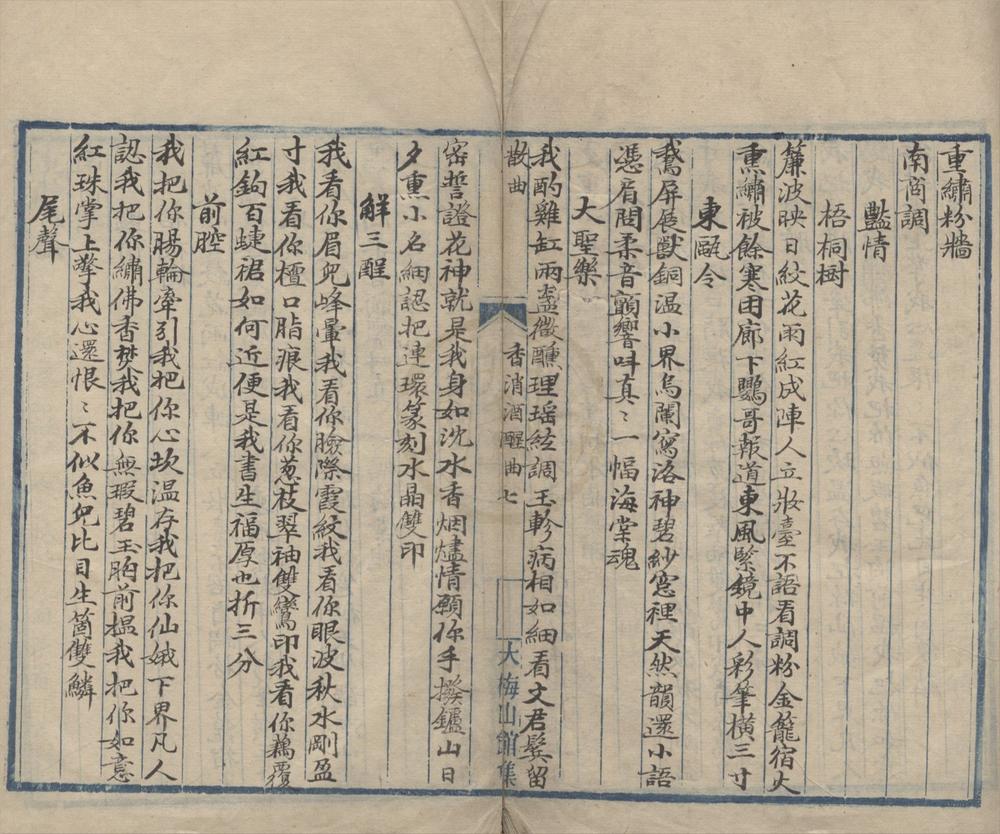 重繡粉牆
南商調
豔情
梧桐樹
簾波映日紋花雨紅成陣人立妝臺不語看調粉金籠宿火
熏繡被餘寒困廊下鸚哥報道東風緊鏡中人彩筆橫三寸
東甌令
鵞屏展獸銅温小界烏闌寫洛神碧紗窓裡天然韻還小語
憑肩問柔音顫響呌真〻一幅海棠魂
大聖樂
我酌雞缸兩盞微醺理瑶絃調玉軫病相如細看文君鬂留
散曲
香消酒醒曲
七
大梅山館集
密誓證花神就是我身如沈水香烟燼情願你手撥鑪山日
夕熏小名細認把連環篆刻水晶雙印
解三酲
我看你眉兜峰暈我看你臉際霞紋我看你眼波秋水剛盈
寸我看你檀口脂痕我看你葱枝翠袖雙鸞印我看你藕覆
紅鉤百蜨裙如何近便是我書生福厚也折三分
前腔
我把你腸輪牽引我把你心坎温存我把你仙娥下界凡人
認我把你繡佛香焚我把你無瑕碧玉胸前揾我把你如意
紅珠掌上擎我心還恨〻不似魚兒比目生箇雙鱗
尾聲